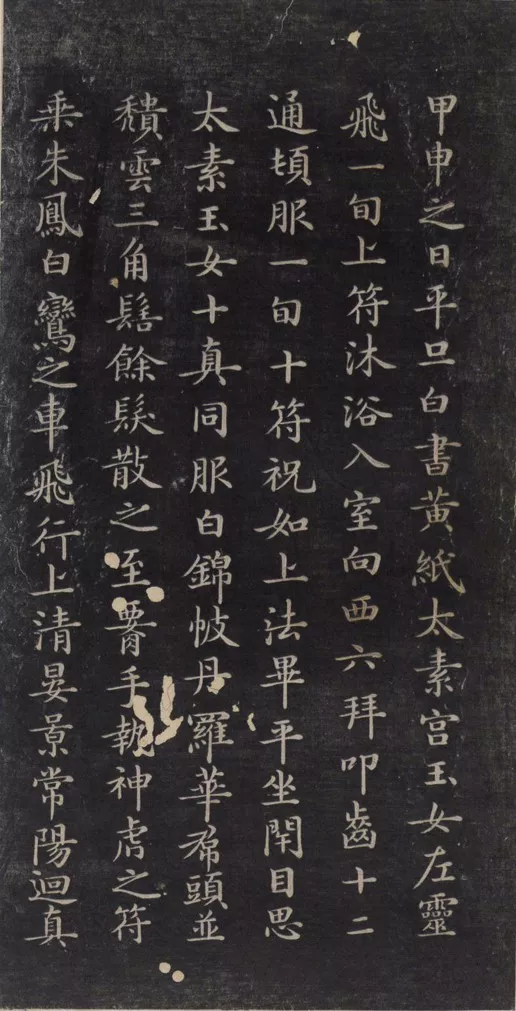 甲申之日平旦白書黄紙太素宫玉女左靈
飛一旬上符沐浴入室向西六拜叩齒十二
通頓服一旬十符祝如上法畢平坐閉目思
太素玉女十真同服白錦帔丹羅華帬頭並
穨雲三角髻餘髮散之至署手執神虎之符
乘朱鳳白鸞之車飛行上清晏景常陽迴真